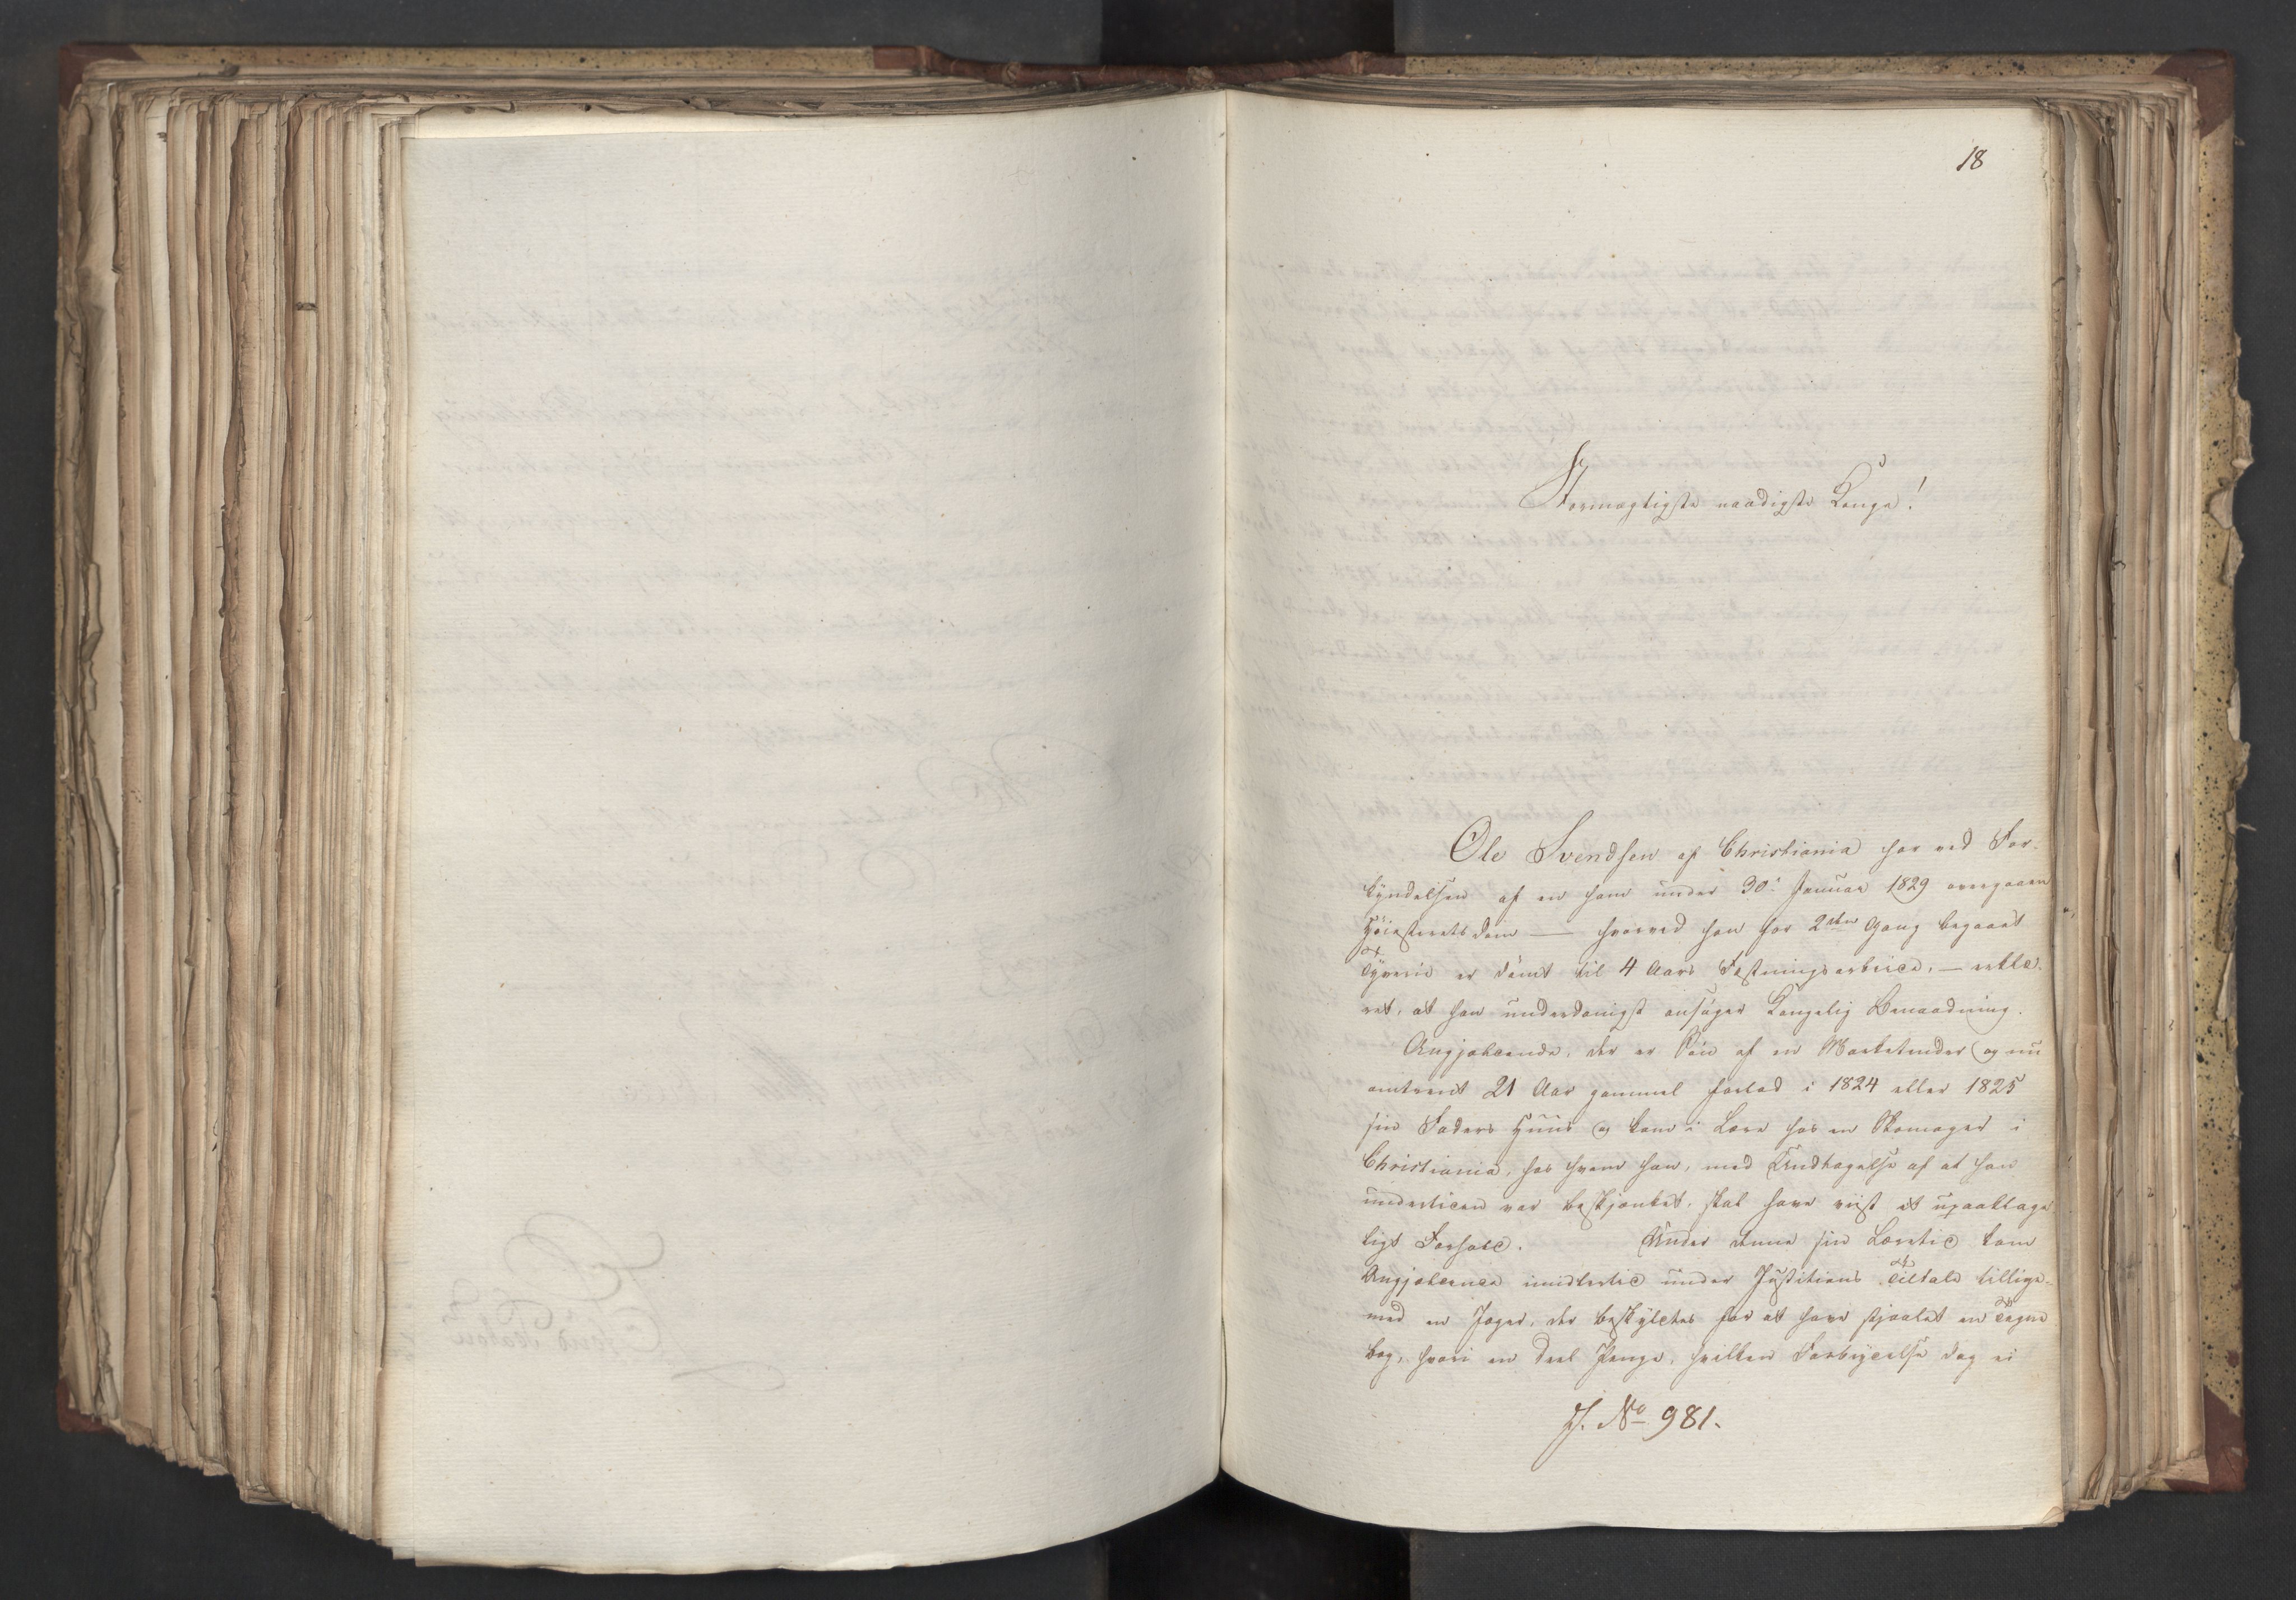 18
Stormægtigste naadigste Konge!
Ole Svendsen af Christiania har ved For-
kyndelsen af en ham under 30: Januar 1829 overgaaen
Høiesteretsdom — hvorved han for 2den Gang begaaet
Tyverie er dømt til 4 Aars Fæstningsarbeide, — erklæ-
ret, at han underdanigst ansøger Kongelig Benaadning.
Angjældende, der er Søn af en Marketender og nu
omtrent 21 Aar gammel forlod i 1824 eller 1825
sin Faders Huus og kom i Lære hos en Skomager i
Christiania, hos hvem han, med Undtagelse af at han
undertiden var beskjænket, skal have viist et upaaklage
ligt Forhold. Under denne sin Læretid kom
Angjældende imidlertid under Justitiens Tiltale tillige-
med en Jøger, der beskyldtes for at have stjaalet en Tegne
bog, hvori en Deel Penge, hvilken Forbrydelse dog ei
J. No 981.